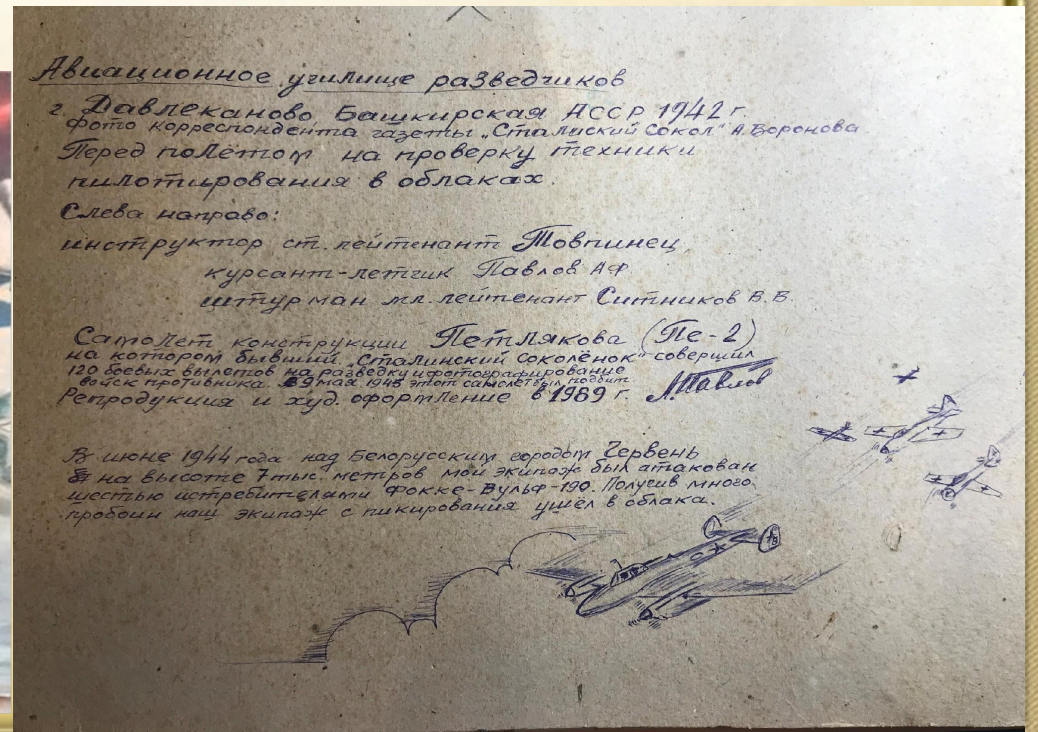 Авиационное училище разведчиков
г. Давлеканово Башкирская АССР 1942 г.
фото корреспондента газеты „Сталиский Сокол" А. Воронова
Перед полётом на проверку техники
пилотирования в облаках.
Слева направо:
инструктор ст. лейтенант Товпинец,
курсант-летчик Павлов А Ф
штурман мл. лейтенант Ситников В. В.
Самолет конструкции Петлякова (Пе-2)
на котором бывший „Сталинский соколёнок" совершил
120 боевых вылетов на разведку и фотографирование
войск противника. 9 мая 1945 этот самолет был подбит.
Репродукция и худ. оформление в 1989 г. А. Павлов
В июне 1944 года над Белорусским городом Червень
на высоте 7 тыс. метров мой экипаж был атакован
шестью истребителями Фокке-Вульф-190. Получив много
пробоин наш экипаж с пикирования ушёл в облака.